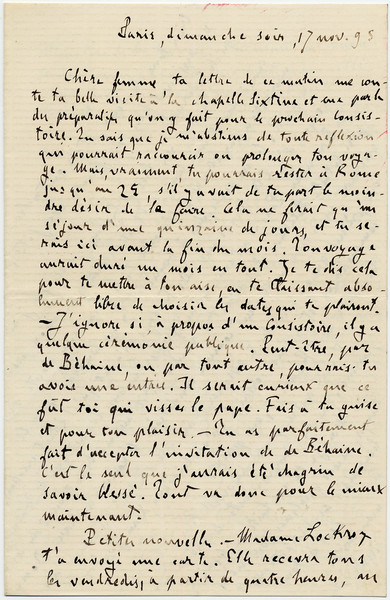 Paris, dimanche soir, 17 nov. 95
Chère femme ta lettre de ce matin me con-
te ta belle visite à la chapelle Sixtine et me parle
des préparatifs qu'on y fait pour le prochain Consis-
toire. Tu sais que je m'abstiens de toute reflexion
qui pourrait raccourcir ou prolonger ton voya-
ge. Mais, vraiment, tu pourrais rester à Rome
jusqu'au 25, s'il y avait de ta part le moin-
dre désir de le faire. Cela ne ferait qu'un
séjour d'une quinzaine de jours, et tu se-
rais ici avant la fin du mois. Ton voyage
aurait duré un mois en tout. Je te dis cela
pour te mettre à ton aise, en te laissant abso-
lument libre de choisir les dates qui te plairont.
— J'ignore si, à propos d'un Consistoire, il y a
quelque cérémonie publique. Peut-être, par
de Béhaine, ou par tout autre, pourrais-tu
avoir une entrée. Il serait curieux que ce
fût toi qui visses le pape. Fais à ta guise
et pour ton plaisir. — Tu as parfaitement
fait d'accepter l'invitation de de Béhaine.
C'est le seul que j'aurais été chagrin de
savoir blessé. Tout va donc pour le mieux
maintenant.
Petites nouvelles. — Madame Lockroy
t'a envoyé une carte. Elle recevra tous
les vendredis, à partir de quatre heures, au